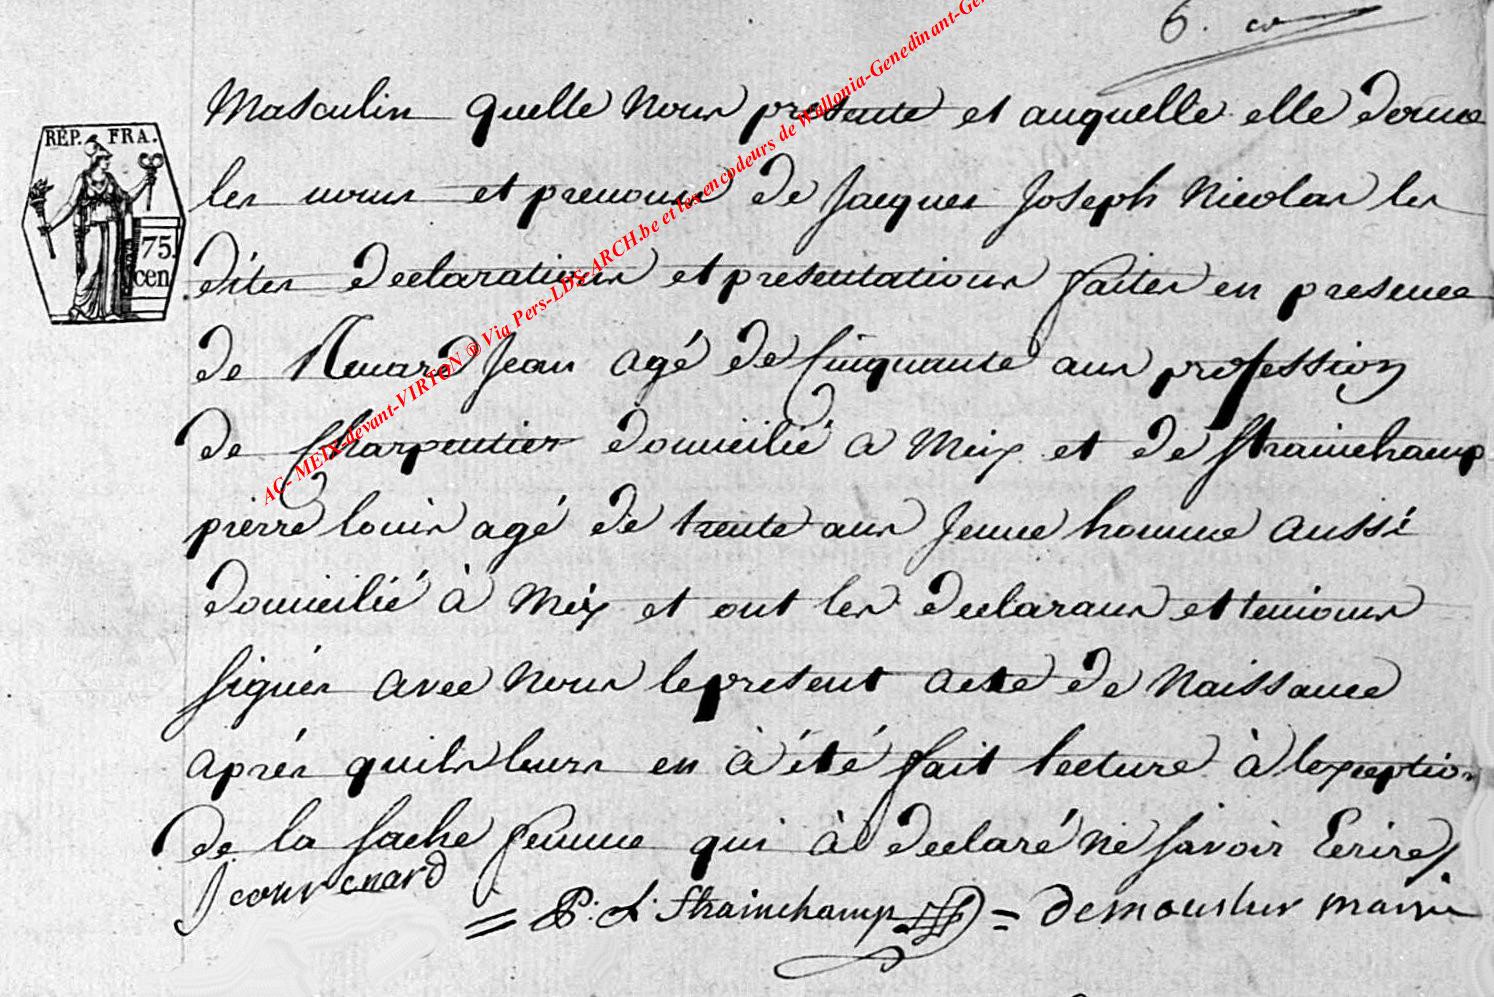 6.
Masculin quelle nous presente et auquelle elle donne
RÉP. FRA.
les noms et prenoms de Jacques Joseph Nicolas les
75.
cen
dites declarations et presentations faites en presence
de Jean agé de Cinquante ans profession
de Charpentier domicilié a Meix et de Strainchamp
pierre louis agé de trente ans Jeune homme aussi
domicilié à Meix et ont les declarans et temoins
signés avec nous le present acte de Naissance
après quils leurs en à été fait lecture à lexception
de la sache femme qui à declaré ne savoir Ecrire
= P. L. Strainchamp = demoustier maire
AC- MEIX-devant-VIRTON ® Via Pers-LDS-ARCH.be et les encodeurs de Wallonia-Genedinant-Gen